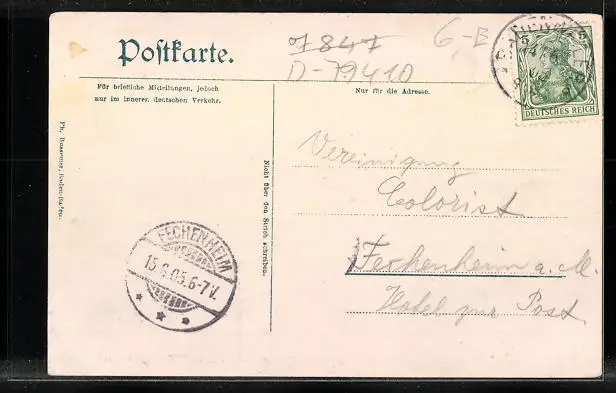 Postkarte.
7847
D-79410
6,-B
Für briefliche Mitteilungen, jedoch
nur im inneren deutschen Verkehr.
Nur für die Adresse.
5
5
DEUTSCHES REICH
Ph. Bussemer, Baden-Baden.
Nicht über den Strich schreiben.
Vereinigung
Colorist
Fechenheim a. M.
Hotel zur Post
FECHENHEIM
15.6.05.6-7V.